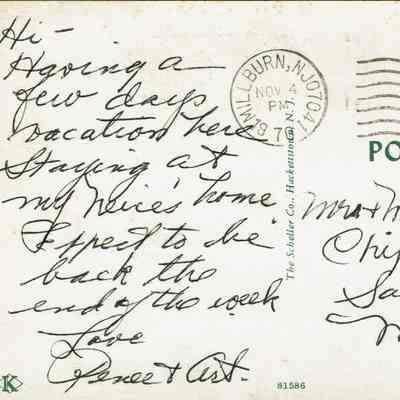 Hi -
Having a
few days
vacation here
Staying at
my Neice's home
Expect to be
back the
end of the week
Love
Renee + Art.
MILLBURN, NJ 07041
NOV 4
PM
1970
The Scheller Co., Hackettstown, N.J.
PO
Chi
Sa
K
81586